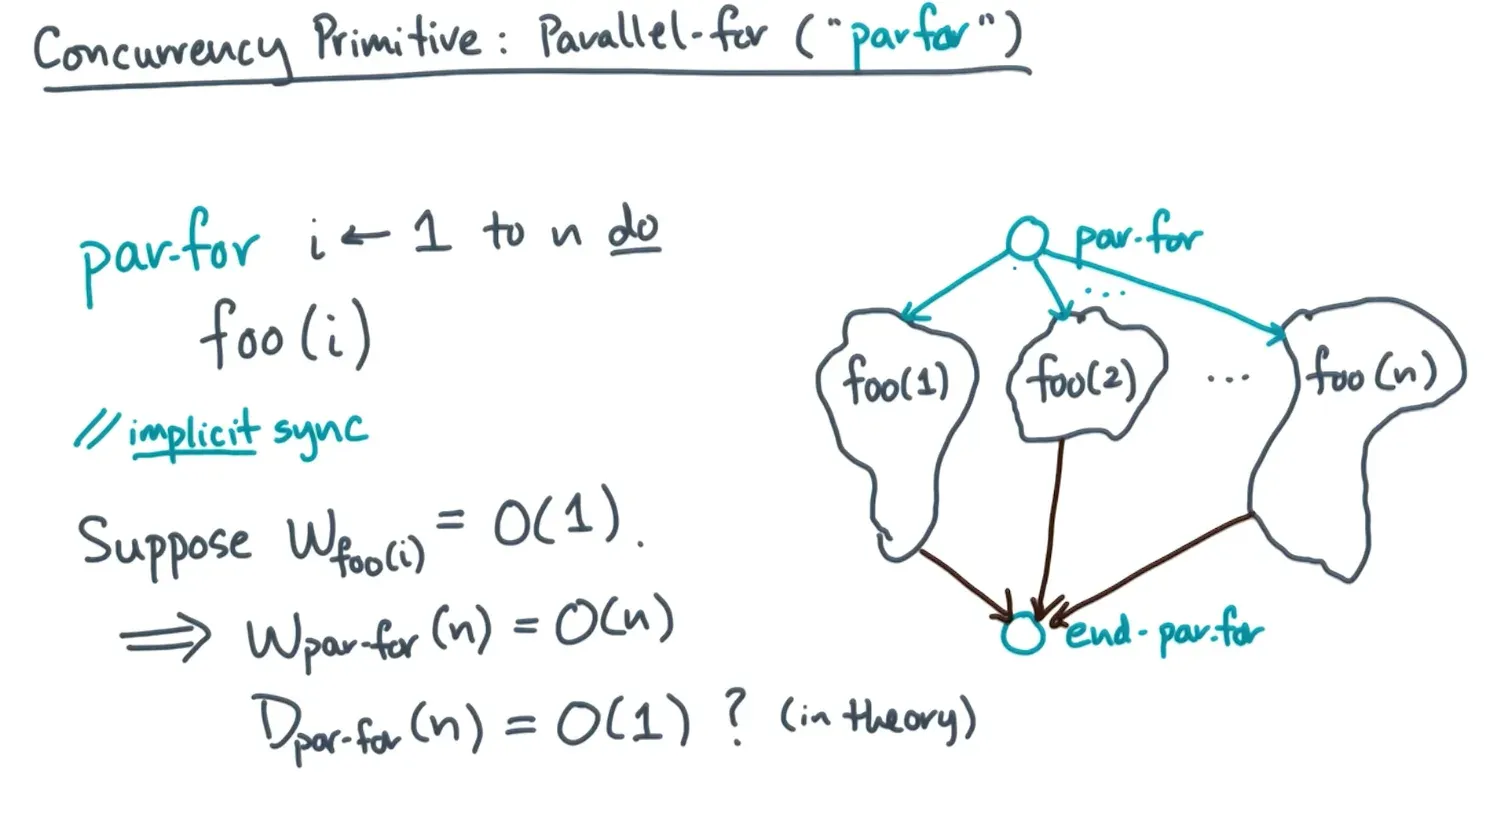 Concurrency Primitive: Parallel-for ("par for")
par-for i ← 1 to n do
foo(i)
// implicit sync
Suppose W_foo(i) = O(1).
⟹ W_par-for(n) = O(n)
D_par-for(n) = O(1) ? (in theory)
par-for
...
foo(1) foo(2) ... foo(n)
end-par-for